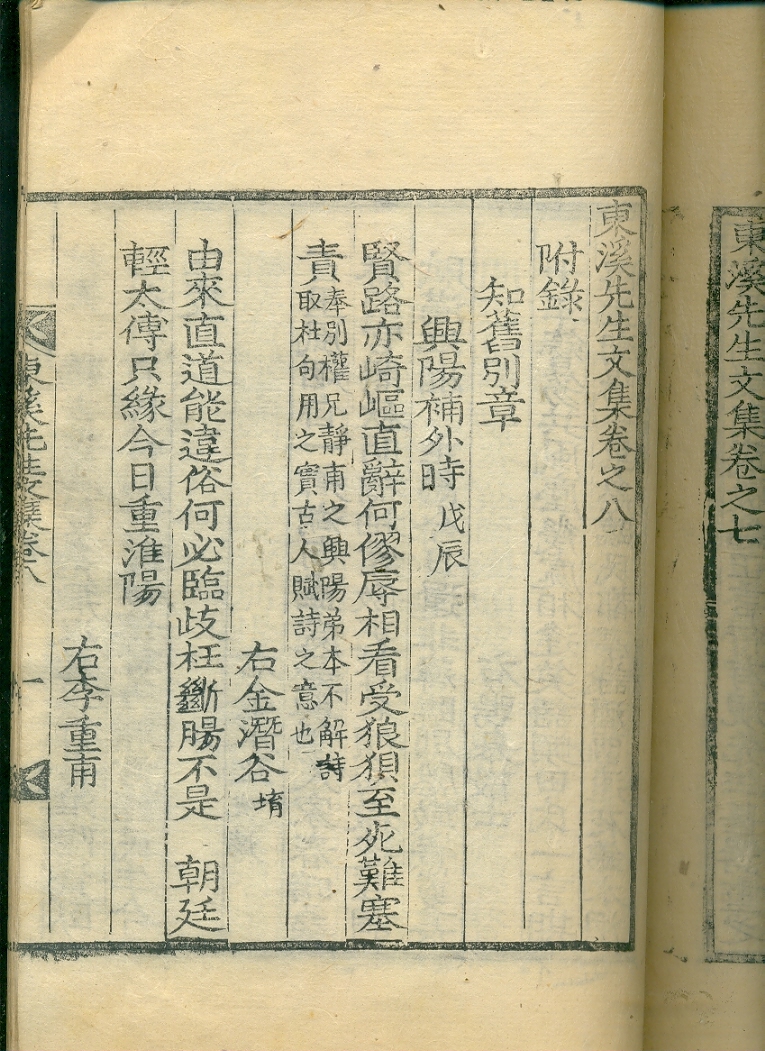 東溪先生文集卷之七
東溪先生文集卷之八
附錄
知舊別章
興陽補外時 戊辰
賢路亦崎嶇直辭何僇辱相看受狼狽至死難塞
責 奉別權兄靜甫之興陽弟本不解詩
取杜句用之實古人賦詩之意也
右金潛谷 堉
由來直道能違俗何必臨歧枉斷腸不是 朝廷
輕太傅只緣今日重淮陽
右李重甫
東溪先生文集卷八
一